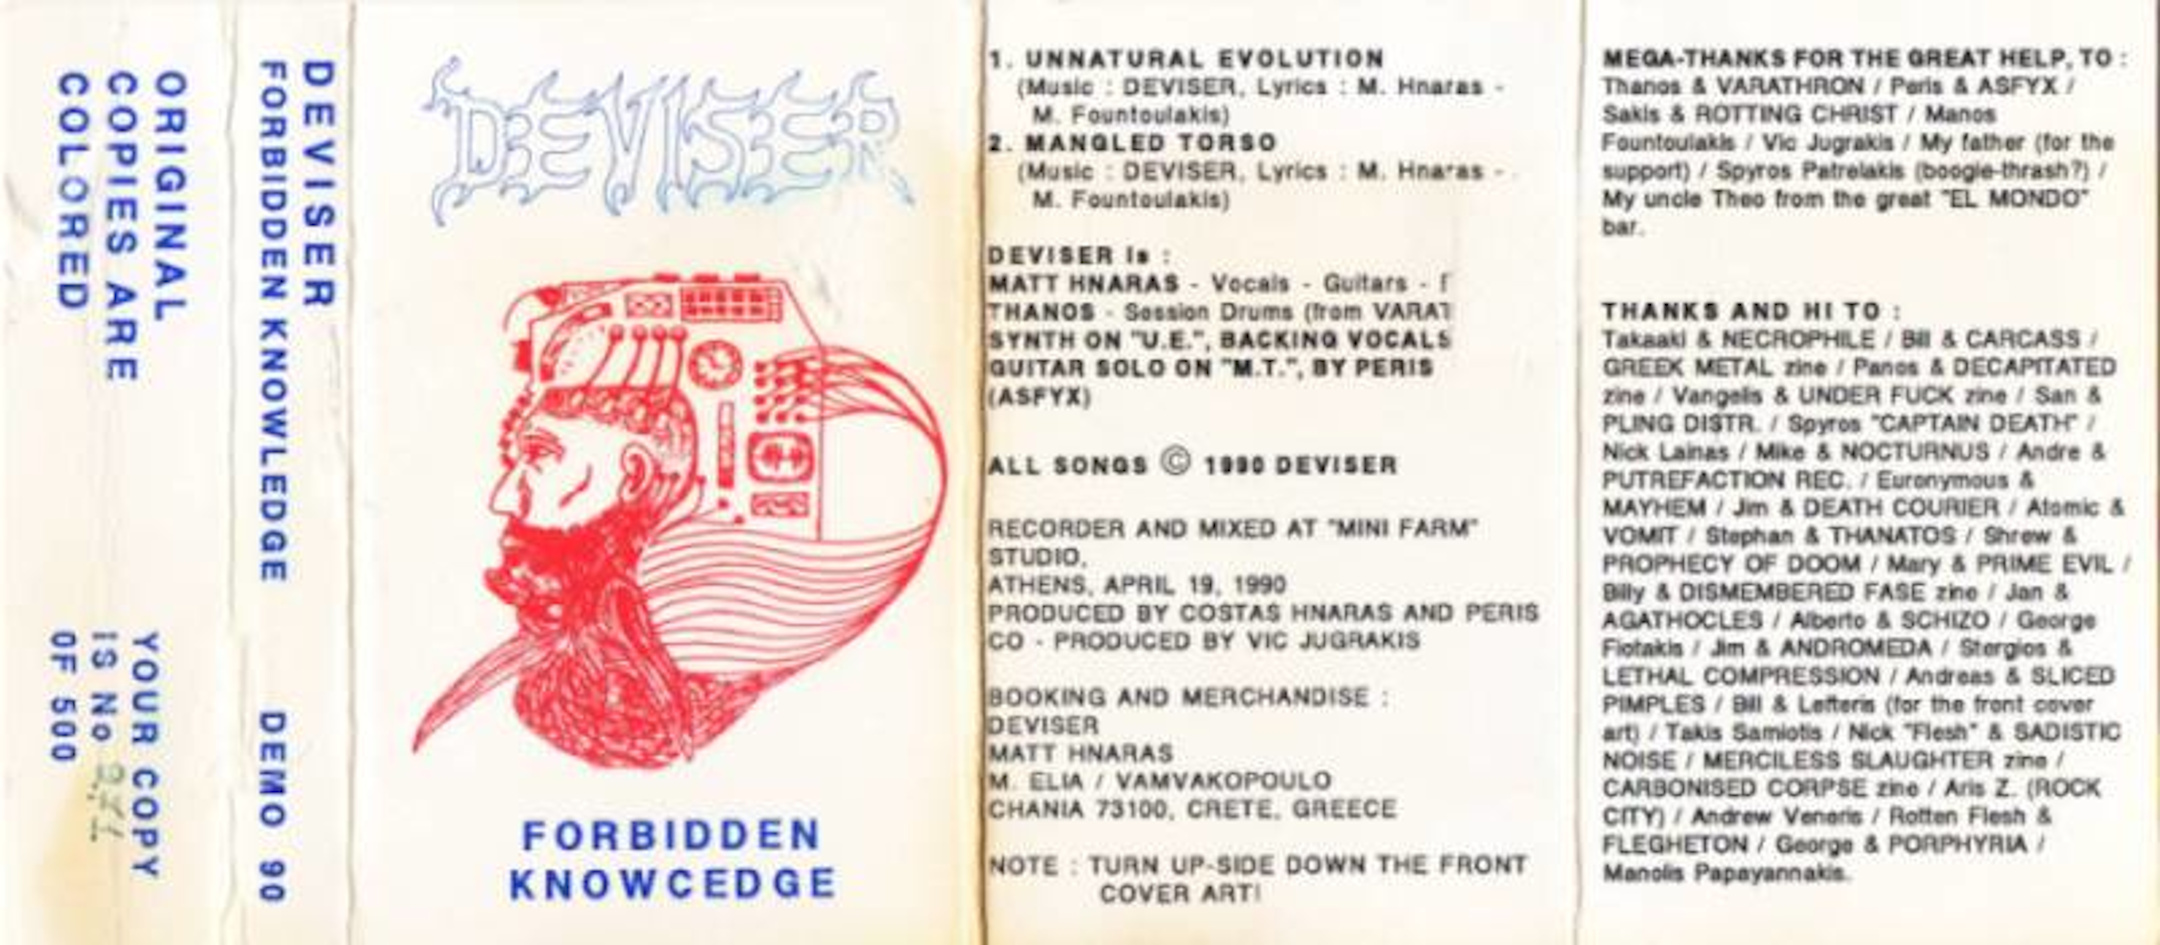 ORIGINAL
COPIES ARE
COLORED
YOUR COPY
IS No
OF 500
DEVISER
FORBIDDEN KNOWLEDGE DEMO 90
DEVISER
FORBIDDEN
KNOWCEDGE
1. UNNATURAL EVOLUTION
(Music : DEVISER, Lyrics : M. Hnaras -
M. Fountoulakis)
2. MANGLED TORSO
(Music : DEVISER, Lyrics : M. Hnaras -
M. Fountoulakis)
DEVISER Is :
MATT HNARAS - Vocals - Guitars -
THANOS - Session Drums (from VARAT
SYNTH ON "U.E.", BACKING VOCALS
GUITAR SOLO ON "M.T.", BY PERIS
(ASFYX)
ALL SONGS © 1990 DEVISER
RECORDER AND MIXED AT "MINI FARM"
STUDIO,
ATHENS, APRIL 19, 1990
PRODUCED BY COSTAS HNARAS AND PERIS
CO - PRODUCED BY VIC JUGRAKIS
BOOKING AND MERCHANDISE :
DEVISER
MATT HNARAS
M. ELIA / VAMVAKOPOULO
CHANIA 73100, CRETE, GREECE
NOTE : TURN UP-SIDE DOWN THE FRONT
COVER ART!
MEGA-THANKS FOR THE GREAT HELP, TO :
Thanos & VARATHRON / Peris & ASFYX /
Sakis & ROTTING CHRIST / Manos
Fountoulakis / Vic Jugrakis / My father (for the
support) / Spyros Patrelakis (boogie-thrash?) /
My uncle Theo from the great "EL MONDO"
bar.
THANKS AND HI TO :
Takaaki & NECROPHILE / Bill & CARCASS /
GREEK METAL zine / Panos & DECAPITATED
zine / Vangelis & UNDER FUCK zine / San &
PLING DISTR. / Spyros "CAPTAIN DEATH" /
Nick Lainas / Mike & NOCTURNUS / Andre &
PUTREFACTION REC. / Euronymous &
MAYHEM / Jim & DEATH COURIER / Atomic &
VOMIT / Stephan & THANATOS / Shrew &
PROPHECY OF DOOM / Mary & PRIME EVIL /
Billy & DISMEMBERED FASE zine / Jan &
AGATHOCLES / Alberto & SCHIZO / George
Fiotakis / Jim & ANDROMEDA / Stergios &
LETHAL COMPRESSION / Andreas & SLICED
PIMPLES / Bill & Lefteris (for the front cover
art) / Takis Samiotis / Nick "Flesh" & SADISTIC
NOISE / MERCILESS SLAUGHTER zine /
CARBONISED CORPSE zine / Aris Z. (ROCK
CITY) / Andrew Veneris / Rotten Flesh &
FLEGHETON / George & PORPHYRIA /
Manolis Papayannakis.